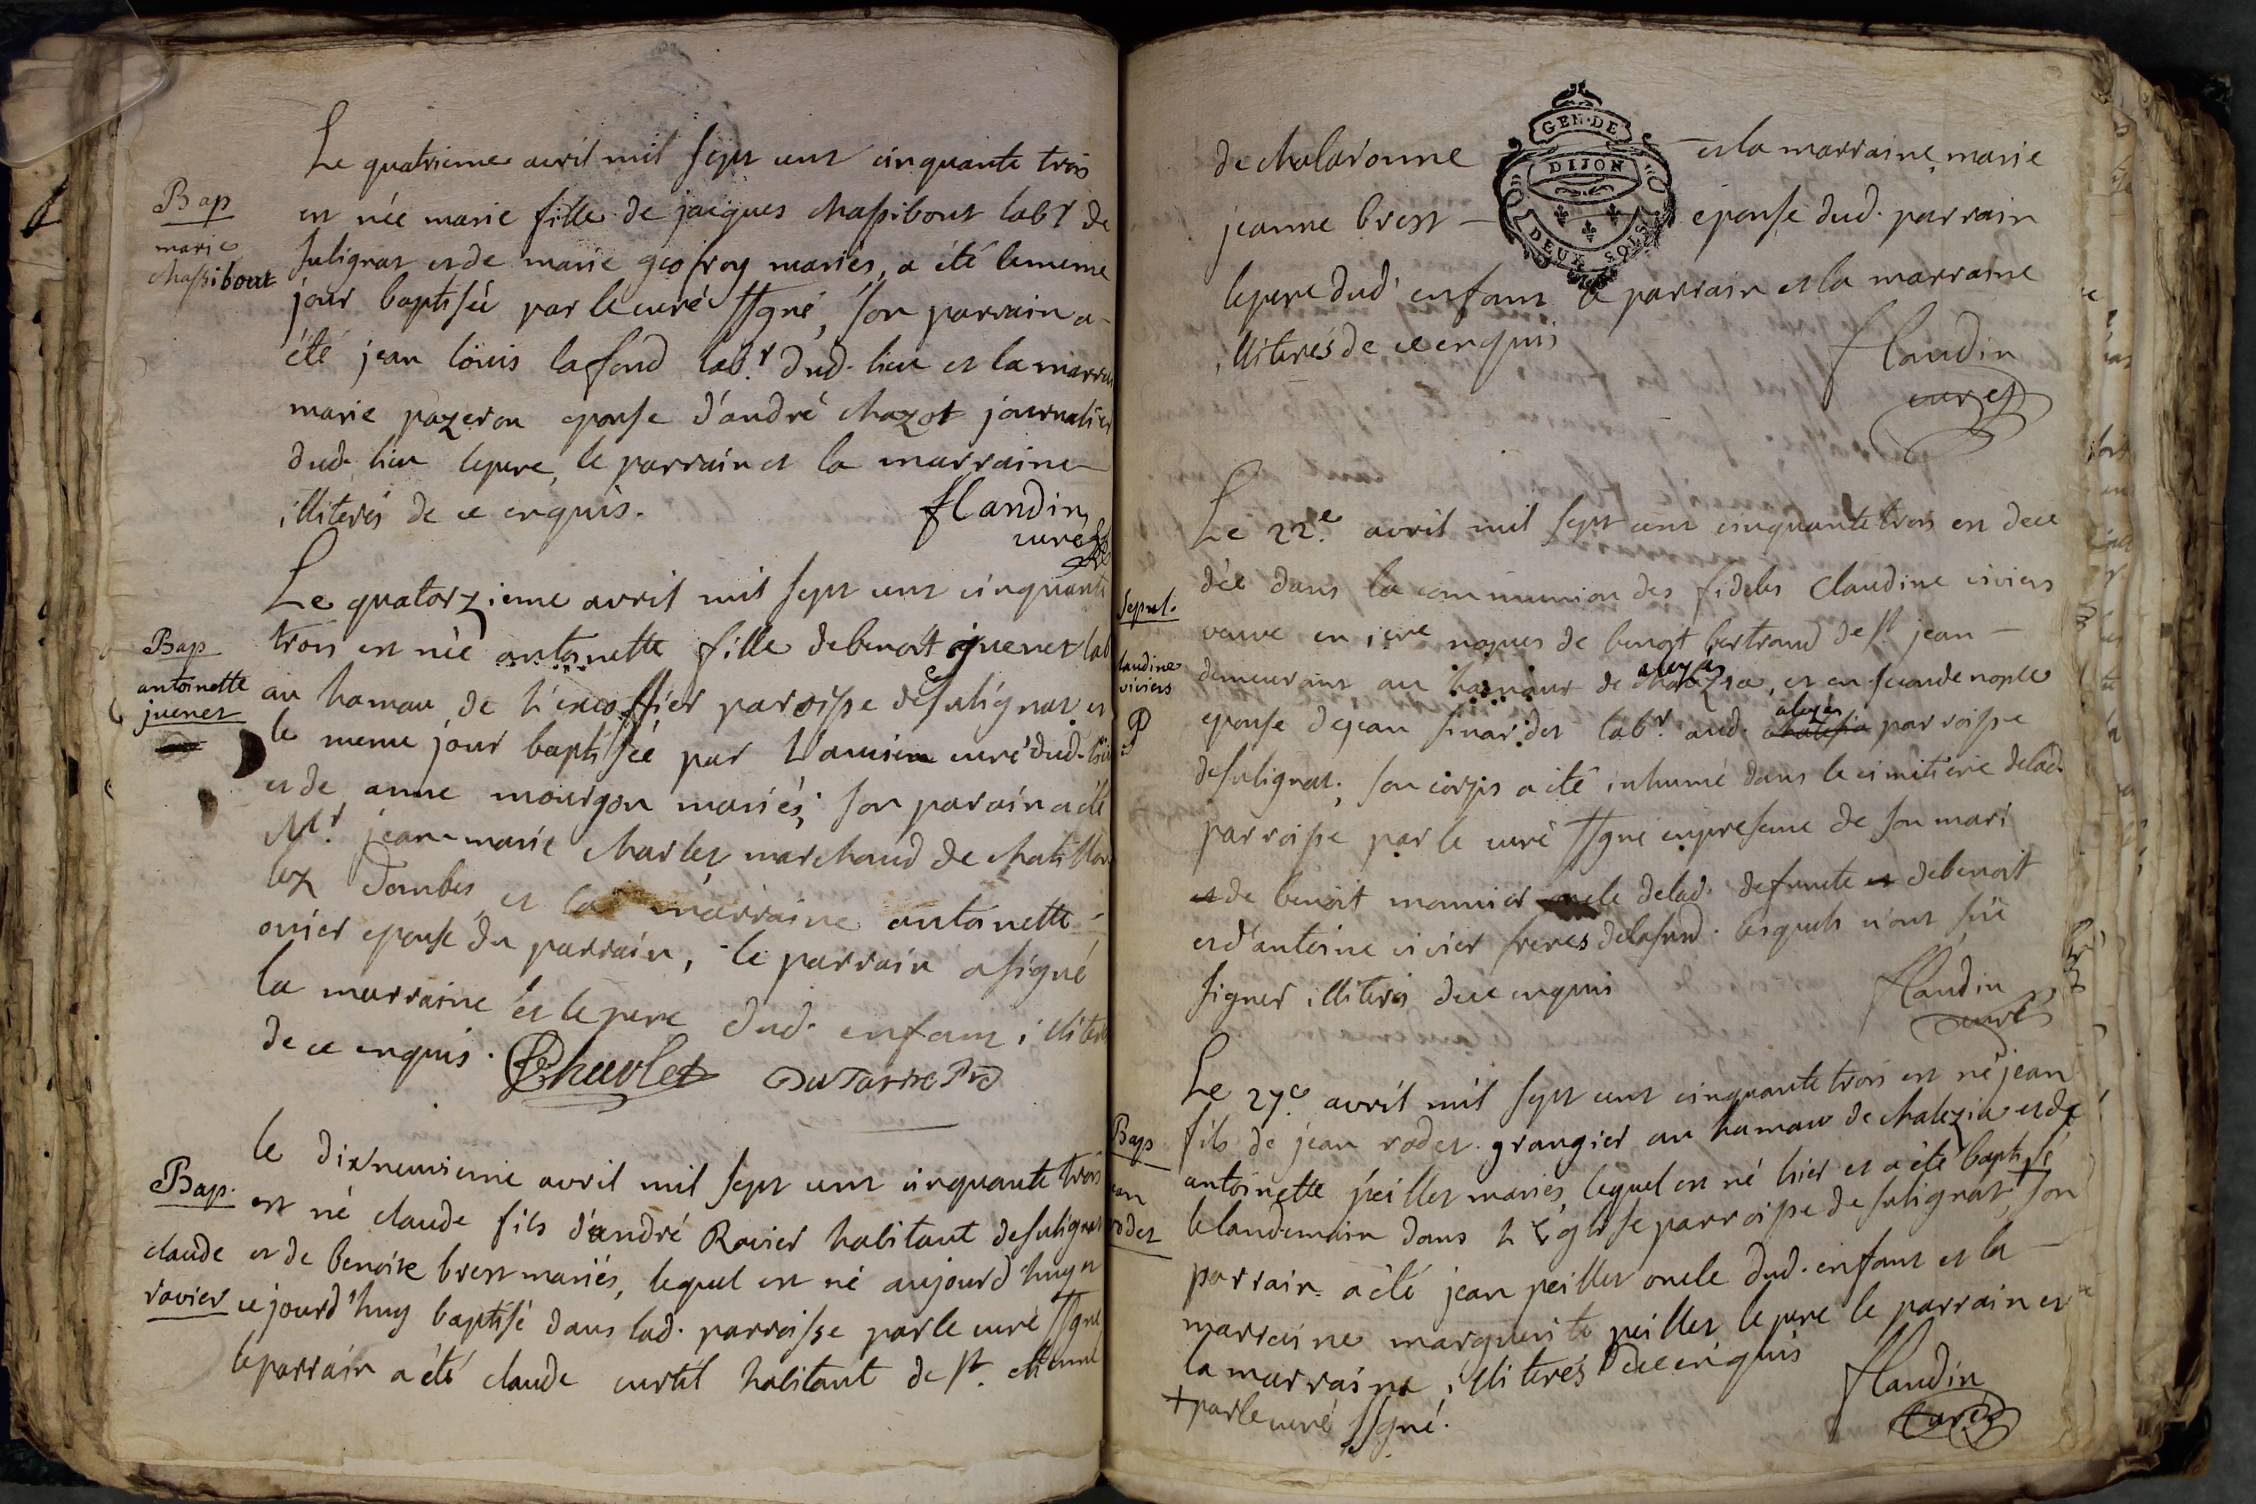 Le quatrieme avril mil sept cent cinquante trois
Bap
est née marie fille de jacques chassibout labr de
marie
chassibout
sulignat et de marie geofroy mariés, a été le meme
jour baptisée par le curé ssgné, son parrain a
été jean loüis lafond labr. dud. lieu et la marra
marie pazeron epouse d'andré chazot journalier
dud. lieu le pere, le parrain et la marraine
illiterés de ce enquis.
flandin
curé
Le quatorzieme avril mil sept cent cinquante
Bap
antoinette
juenet
trois est née antoinette fille de benoit juenet lab
au hamau de l'escoffier paroisse de sulignat et
le meme jour baptisée par l'ancien curé dud. lieu
et de anne mourgon mariés; son parain a été
Mr. jean-marie charlet marchand de chatillon
lez dombes et la marraine antoinette
ovier epouse du parrain, le parrain a signé
la marraine et le pere dud. enfant illiterés
de ce enquis.
le dixneuvieme avril mil sept cent cinquante trois
Bap.
claude
ravier
est né claude fils d'andré Ravier habitant de sulignat
et de benoite brest mariés, lequel est né aujourd'huy et
cejourd'huy baptisé dans lad. parroisse par le curé ssgné
le parrain a été claude curtil habitant de st. etienne
de chalaronne et la marraine marie
GEN. DE
DIJON
DEUX SOLS
jeanne brest epouse dud. parrain
le pere dud. enfant le parrain et la marraine
illiterés de ce enquis
flandin
curé
Le 22e. avril mil sept cent cinquante trois est dece
sepul.
laudine
viviers
dée dans la communion des fideles claudine viviers
veuve en 1ere nopces de benoit bertrand de st jean
demeurant au hamaur de et en seconde nopce
epouse de jean sinardet labr. aud. parroisse
de sulignat; son corps a été inhumé dans le cimitiere de lad.
parroisse par le curé ssgné en presence de son mari
et de benoit monnier oncle de lad. defuncte et de benoit
et d'antoine vivier freres de lasusd. lesquels n'ont sçu
signer illiterés de ce enquis
flandin
curé
Le 27e. avril mil sept cent cinquante trois est né jean
Bap
ean
odet
fils de jean rodet grangier au hamau de chalezia et de
antoinette peillet mariés, lequel est né hier et a été baptisé
le landemain dans l'église parroisse de sulignat + son
parrain a été jean peillet oncle dud. enfant et la
marraine marguerite peillet le pere le parrain et
la marraine illiterés de ce enquis
flandin
curé
+ par le curé ssgné.